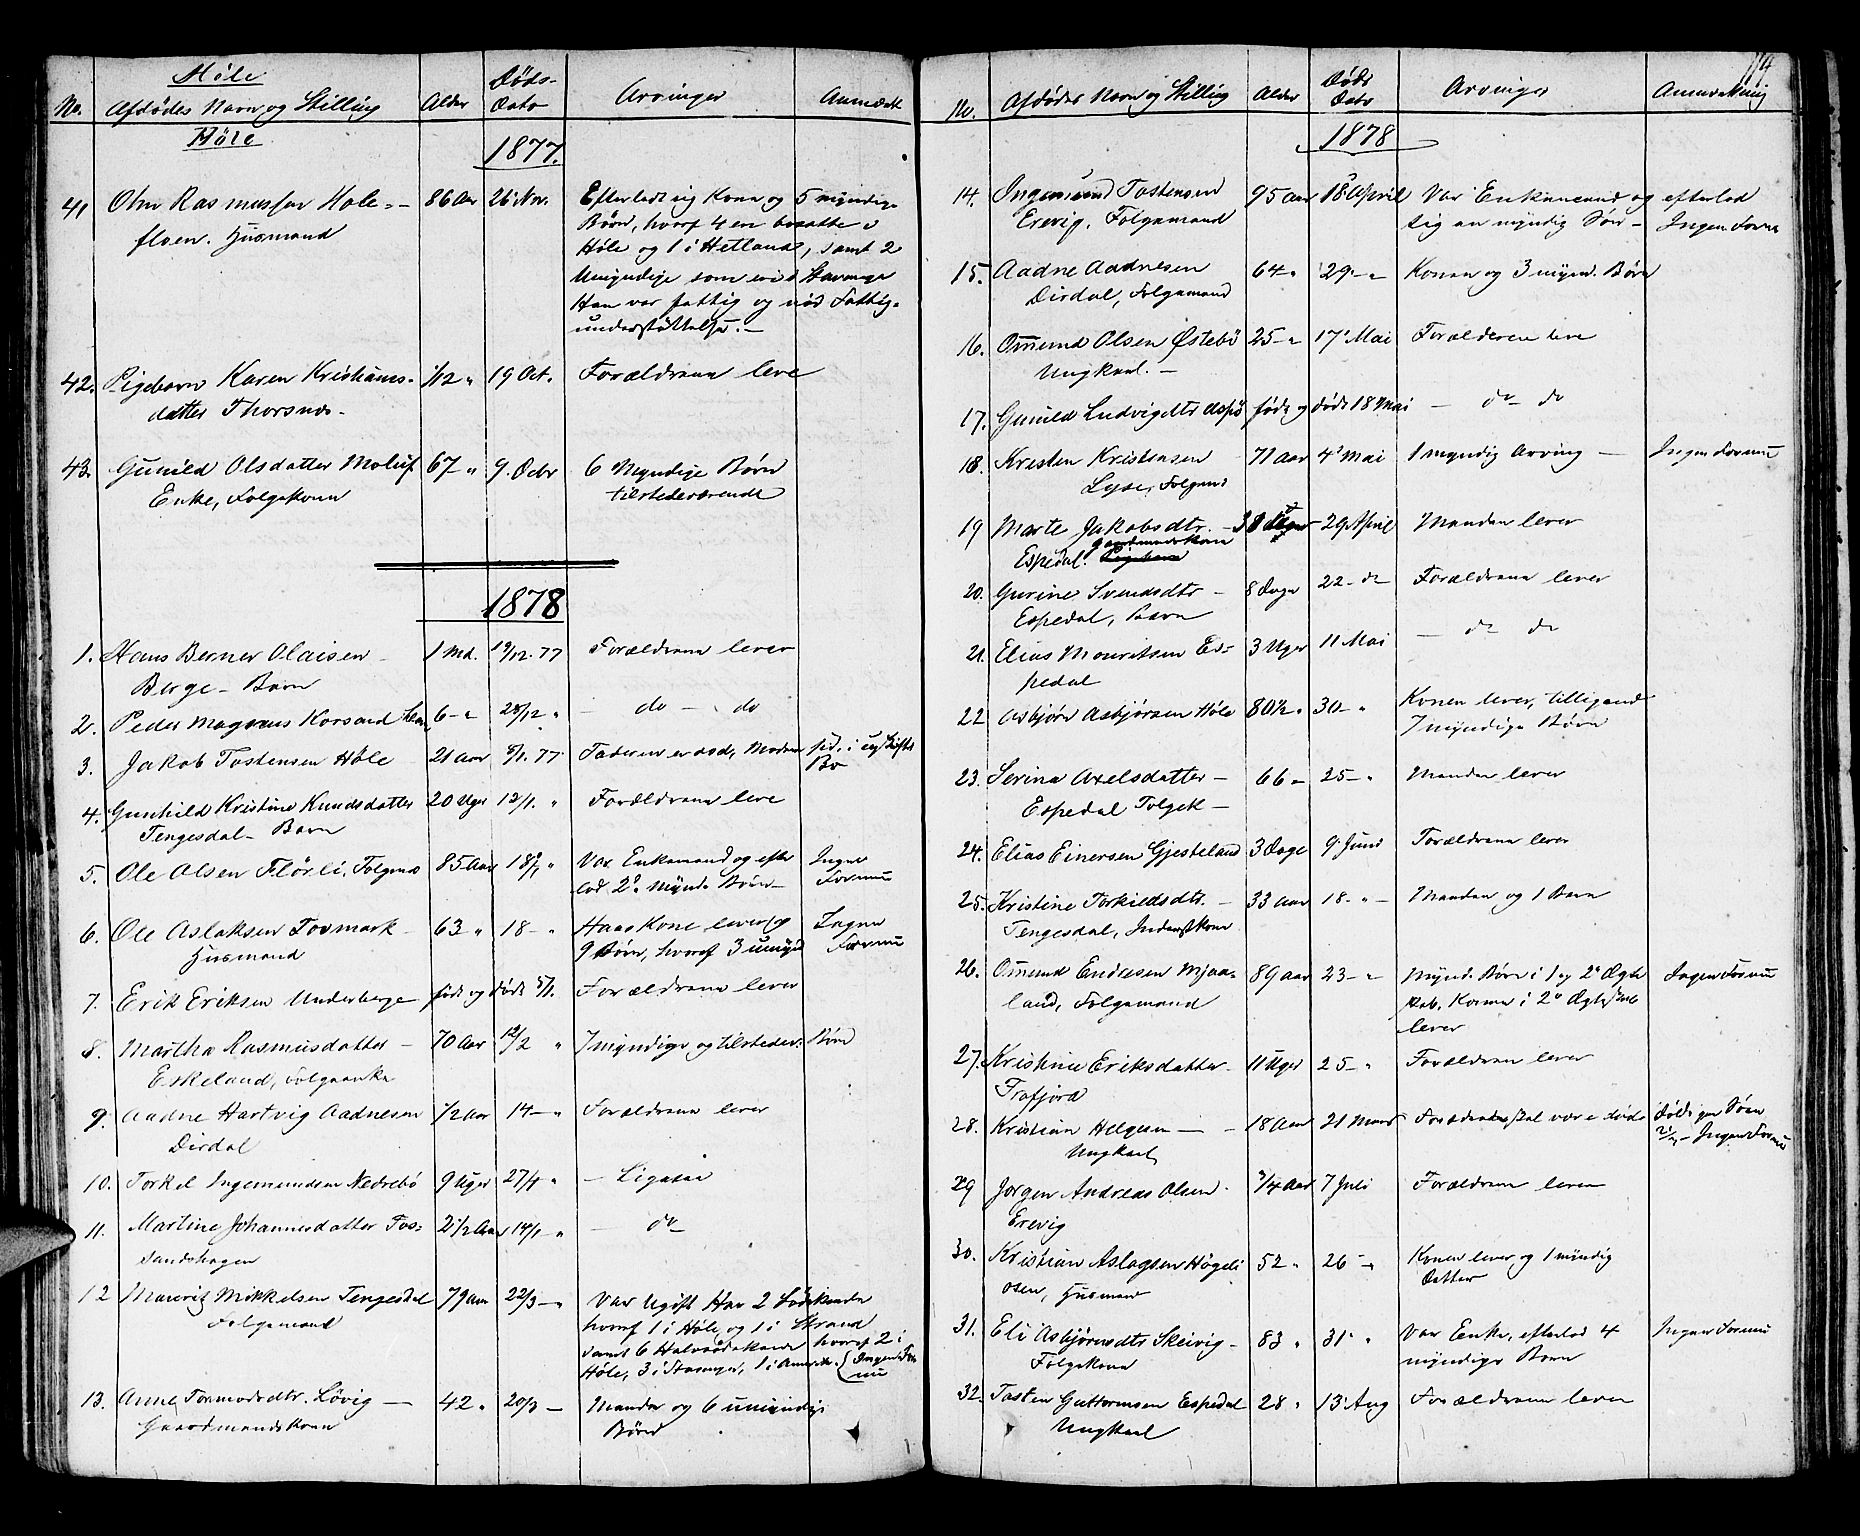 Høle
No. Afdødes Navn og Stilling Alder Døds-Dato Arvinger Anmærk
Høle
1877.
41 Olm Rasmussen Høle- 86 Aar 26 Nov. Efterlodt sig Kone og 5 myndige
floen. Husmand Børn, hvoraf 4 ere bosatte i
Høle og 1 i Hetland, samt 2
Umyndige som ere i Stavanger
Han var fattig og nød Fattig-
understøttelse.-
42. Pigebarn Karen Kristians- 1/12 " 19 Oct. Forældrene leve
datter Thorsnes-
43. Gunild Olsdatter Moluf 67 " 9. Octbr 6 Myndige Børn
Enke, Folgekone tilstedeværende
1878
1. Hans Berner Olaisen 1 Md. 19/12.77 Forældrene lever
Berge - Barn
2. Peder Magnus Korsand 6 - " 28/12 " - do - do
3. Jakob Tostensen Høle 21 Aar 8/1.77 Faderen er død, Moderen sid. i uskiftet
Bo
4. Gunhild Kristine Knudsdatter 20 Uger 12/1. " Forældrene leve
Tengesdal - Barn
5. Ole Olsen Flørli, Folgemd 85 Aar 18/1 " Var Enkemand og efter Ingen
lod 2 Mynd. Børn - Formue
6. Ole Aslaksen Fosmark 63 " 18 - " Hans Kone lever og Ingen
Husmand 9 Børn, hvoraf 3 umynd Formue
7. Erik Eriksen Underberge født og død 5/1. Forældrene lever
8. Martha Rasmusdatter - 70 Aar 12/2 " 7 myndige og tilsteder. Børn
Eskeland, Folgeenke
9. Aadne Hartvig Aadnesen 1/2 Aar 14 - " Forældrene lever
Dirdal
10. Torkel Ingemundsen Nedrebø 9 Uger 27/4 " - Ligesaa
11. Martine Johannesdatter Fos- 2 1/2 Aar 14/1 - " - do -
sandshagen
12 Mauritz Mikkelsen Tengesdal 79 Aar 22/3 - " Var Ugift Har 2 Sødskende
Folgemand hvoraf 1 i Høle, og 1 i Strand
samt 6 Halvsødskende hvoraf 2 i
Høle, 3 i Stavanger, 1 i Amerika. (Ingen For
mue
13. Anne Tormodsdtr. Løvig - 42 " 20/3 - Manden og 6 umyndige
Gaardmandskone Børn
174
No. Afdødes Navn og Stilling Alder Døds Dato Arvinger Anmærkning
1878
14. Ingemund Tostensen 95 Aar 18 April Var Enkemand og efterlod
Erevig, Folgemand sig en myndig Søn - Ingen Formue
15. Aadne Aadnesen 64 " 29 - " Konen og 3 mynd. Børn
Dirdal, Folgemand
16. Omund Olsen Østebø 25 - " 17 Mai Forælderene leve
Ungkarl. -
17. Gunild Ludvigsdtr Espø født og død 18 Mai - do do
18. Kresten Kristensen 71 Aar 4 Mai 1 myndig Arving - Ingen Formue
Lyse, Folgemd
19 Marte Jakobsdtr. - 38 29 April Manden lever
Espedal. Gaardmandskone
20. Gurine Svendsdtr - 8 Dage 22 - do Forældrene lever
Espedal, Barn
21. Elias Mouritsen Es- 3 Uger 11 Mai - do do
pedal
22 Asbjørn Asbjørnsen Høle 80 1/2 " 30 - " Konen lever, tilligemed
7 myndige Børn
23. Serina Axelsdatter - 66 - 25 - " Manden lever
Espedal Folgek -
24. Elias Einersen Gjesteland 3 Dage 9 Juni Forældrene lever
25. Kristine Torkildsdtr. - 33 Aar 18 - " - Manden og 1 Barn
Tengesdal, Inderstkone
26. Omund Endresen Mjaa- 89 Aar 23 - " Mynd. Børn i 1 og 2 Ægte Ingen Formue
land, Folgemand skab. Konen i 2 Ægteskab
lever
27. Kristine Eriksdatter 11 Uger 25 - " Forældrene lever
Frafjord
28. Kristian Helgesen - 18 Aar 21 Marts Forældrene skal være døde
Ungkarl Ingen Formue
29 Jorgen Andreas Olsen 3/4 Aar 7 Juli Forældrene lever
Erevig
30. Kristian Aslagsen Høgeli 52 " 26 - " Konen lever og 1 myndig
osen, Husmand Datter
31. Eli Asbjørnsdtr Skeivig - 83 " 31 " Var Enke, efterlod 4 Ingen Formue
Folgekone myndige Børn
32. Tosten Guttormsen Espedal 28 " 13 Aug Forældrene lever
Ungkarl